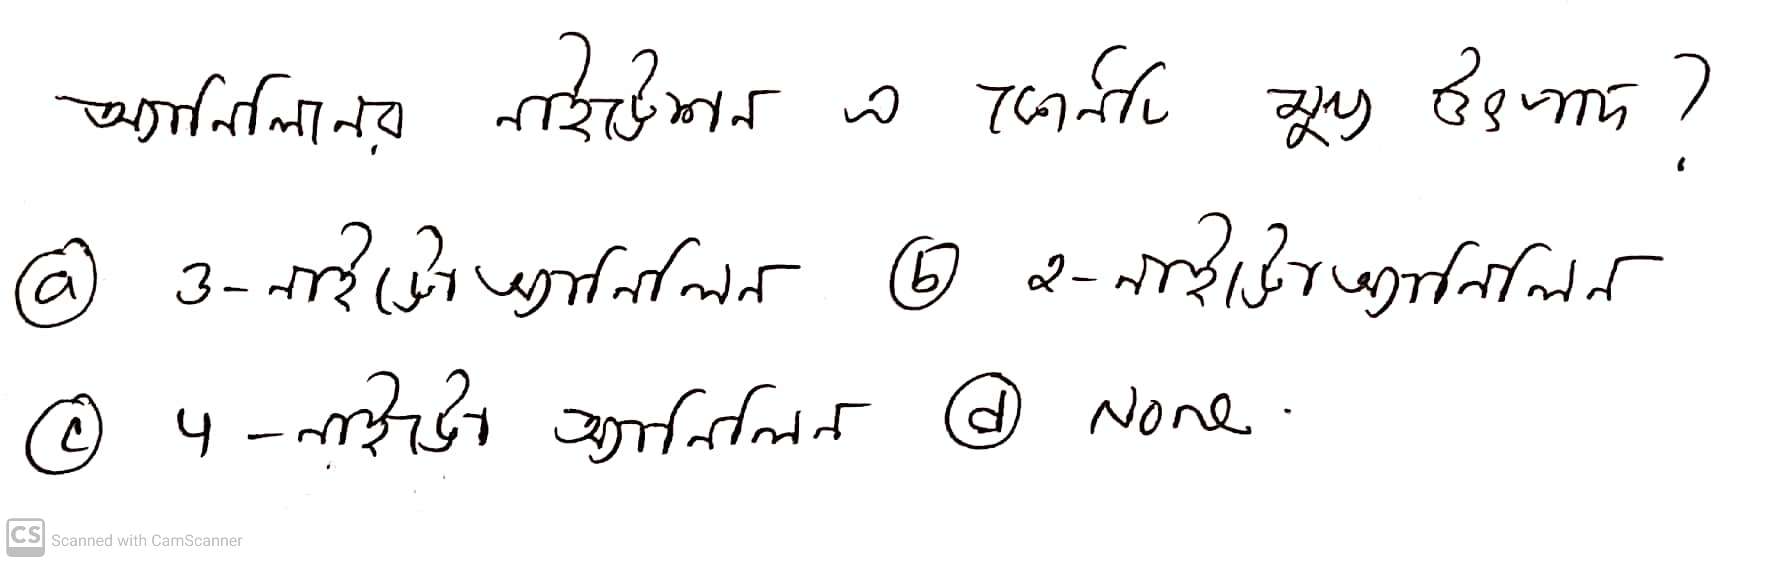 অ্যানিলিনের নাইট্রেশন এ কোনটি মুখ্য উৎপাদ ?
ⓐ 3-নাইট্রোঅ্যানিলিন ⓑ ২-নাইট্রোঅ্যানিলিন
ⓒ 4-নাইট্রো অ্যানিলিন ⓓ None.
CS Scanned with CamScanner